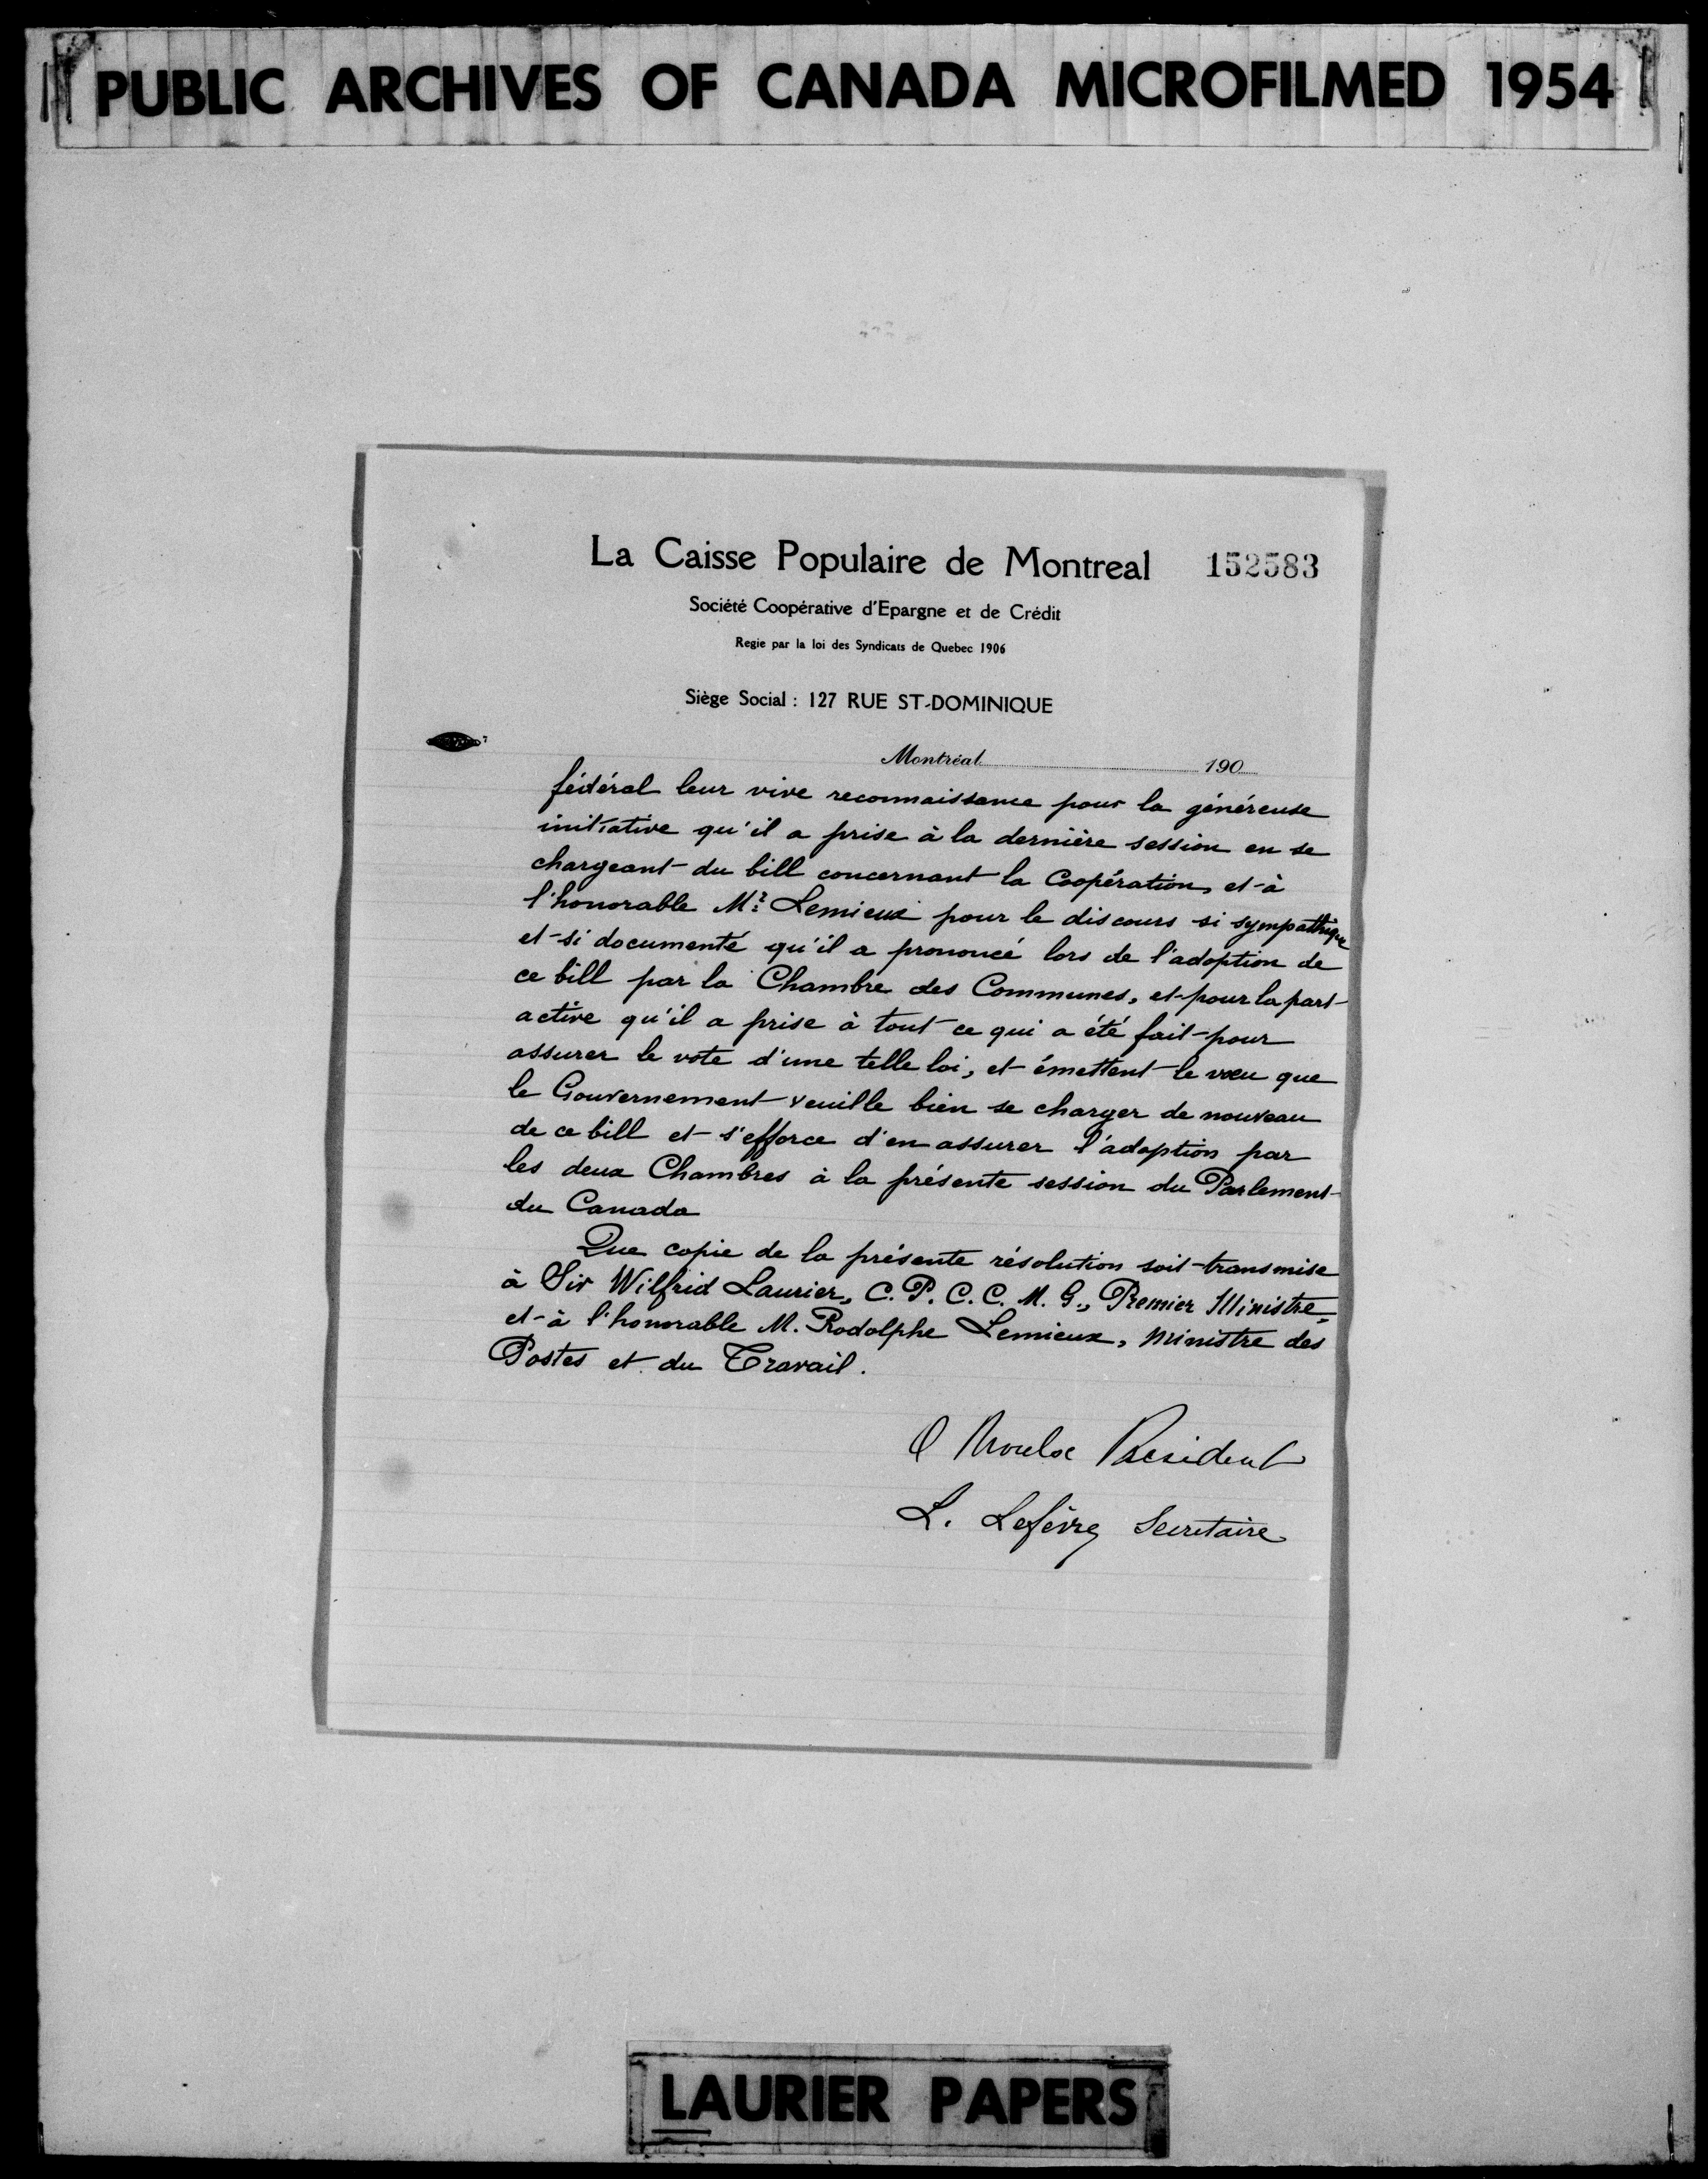 PUBLIC ARCHIVES OF CANADA MICROFILMED 1954
La Caisse Populaire de Montreal 152583
Société Coopérative d'Epargne et de Crédit
Regie par la loi des Syndicats de Quebec 1906
Siège Social : 127 RUE ST-DOMINIQUE
Montréal 190
fédéral leur vive reconnaissance pour la généreuse
initiative qu'il a prise à la dernière session en se
chargeant du bill concernant la Coopération, et à
l'honorable Mr Lemieux pour le discours si sympathique
et si documenté qu'il a prononcé lors de l'adoption de
ce bill par la Chambre des Communes, et pour la part
active qu'il a prise à tout ce qui a été fait pour
assurer le vote d'une telle loi, et émettent le vœu que
le Gouvernement veuille bien se charger de nouveau
de ce bill et s'efforce d'en assurer l'adoption par
les deux Chambres à la présente session du Parlement
du Canada
Que copie de la présente résolution soit transmise
à Sir Wilfrid Laurier, C. P. C. C. M. G., Premier Ministre,
et à l'honorable M. Rodolphe Lemieux, Ministre des
Postes et du Travail.
President
L. Lefèvre Secretaire
LAURIER PAPERS